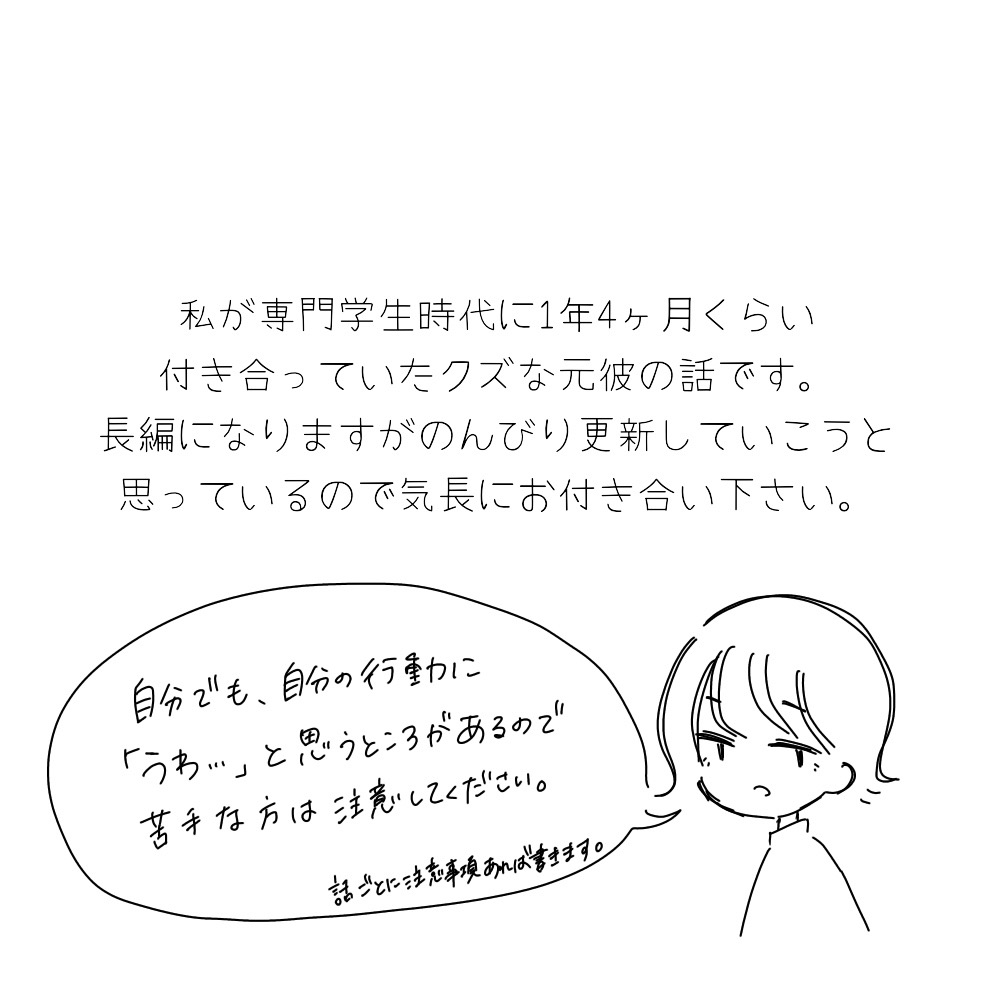 私が専門学生時代に1年4ヶ月くらい
付き合っていたクズな元彼の話です。
長編になりますがのんびり更新していこうと
思っているので気長にお付き合い下さい。
自分でも、自分の行動に
「うわ…」と思うところがあるので
苦手な方は注意してください。
話ごとに注意事項あれば書きます。